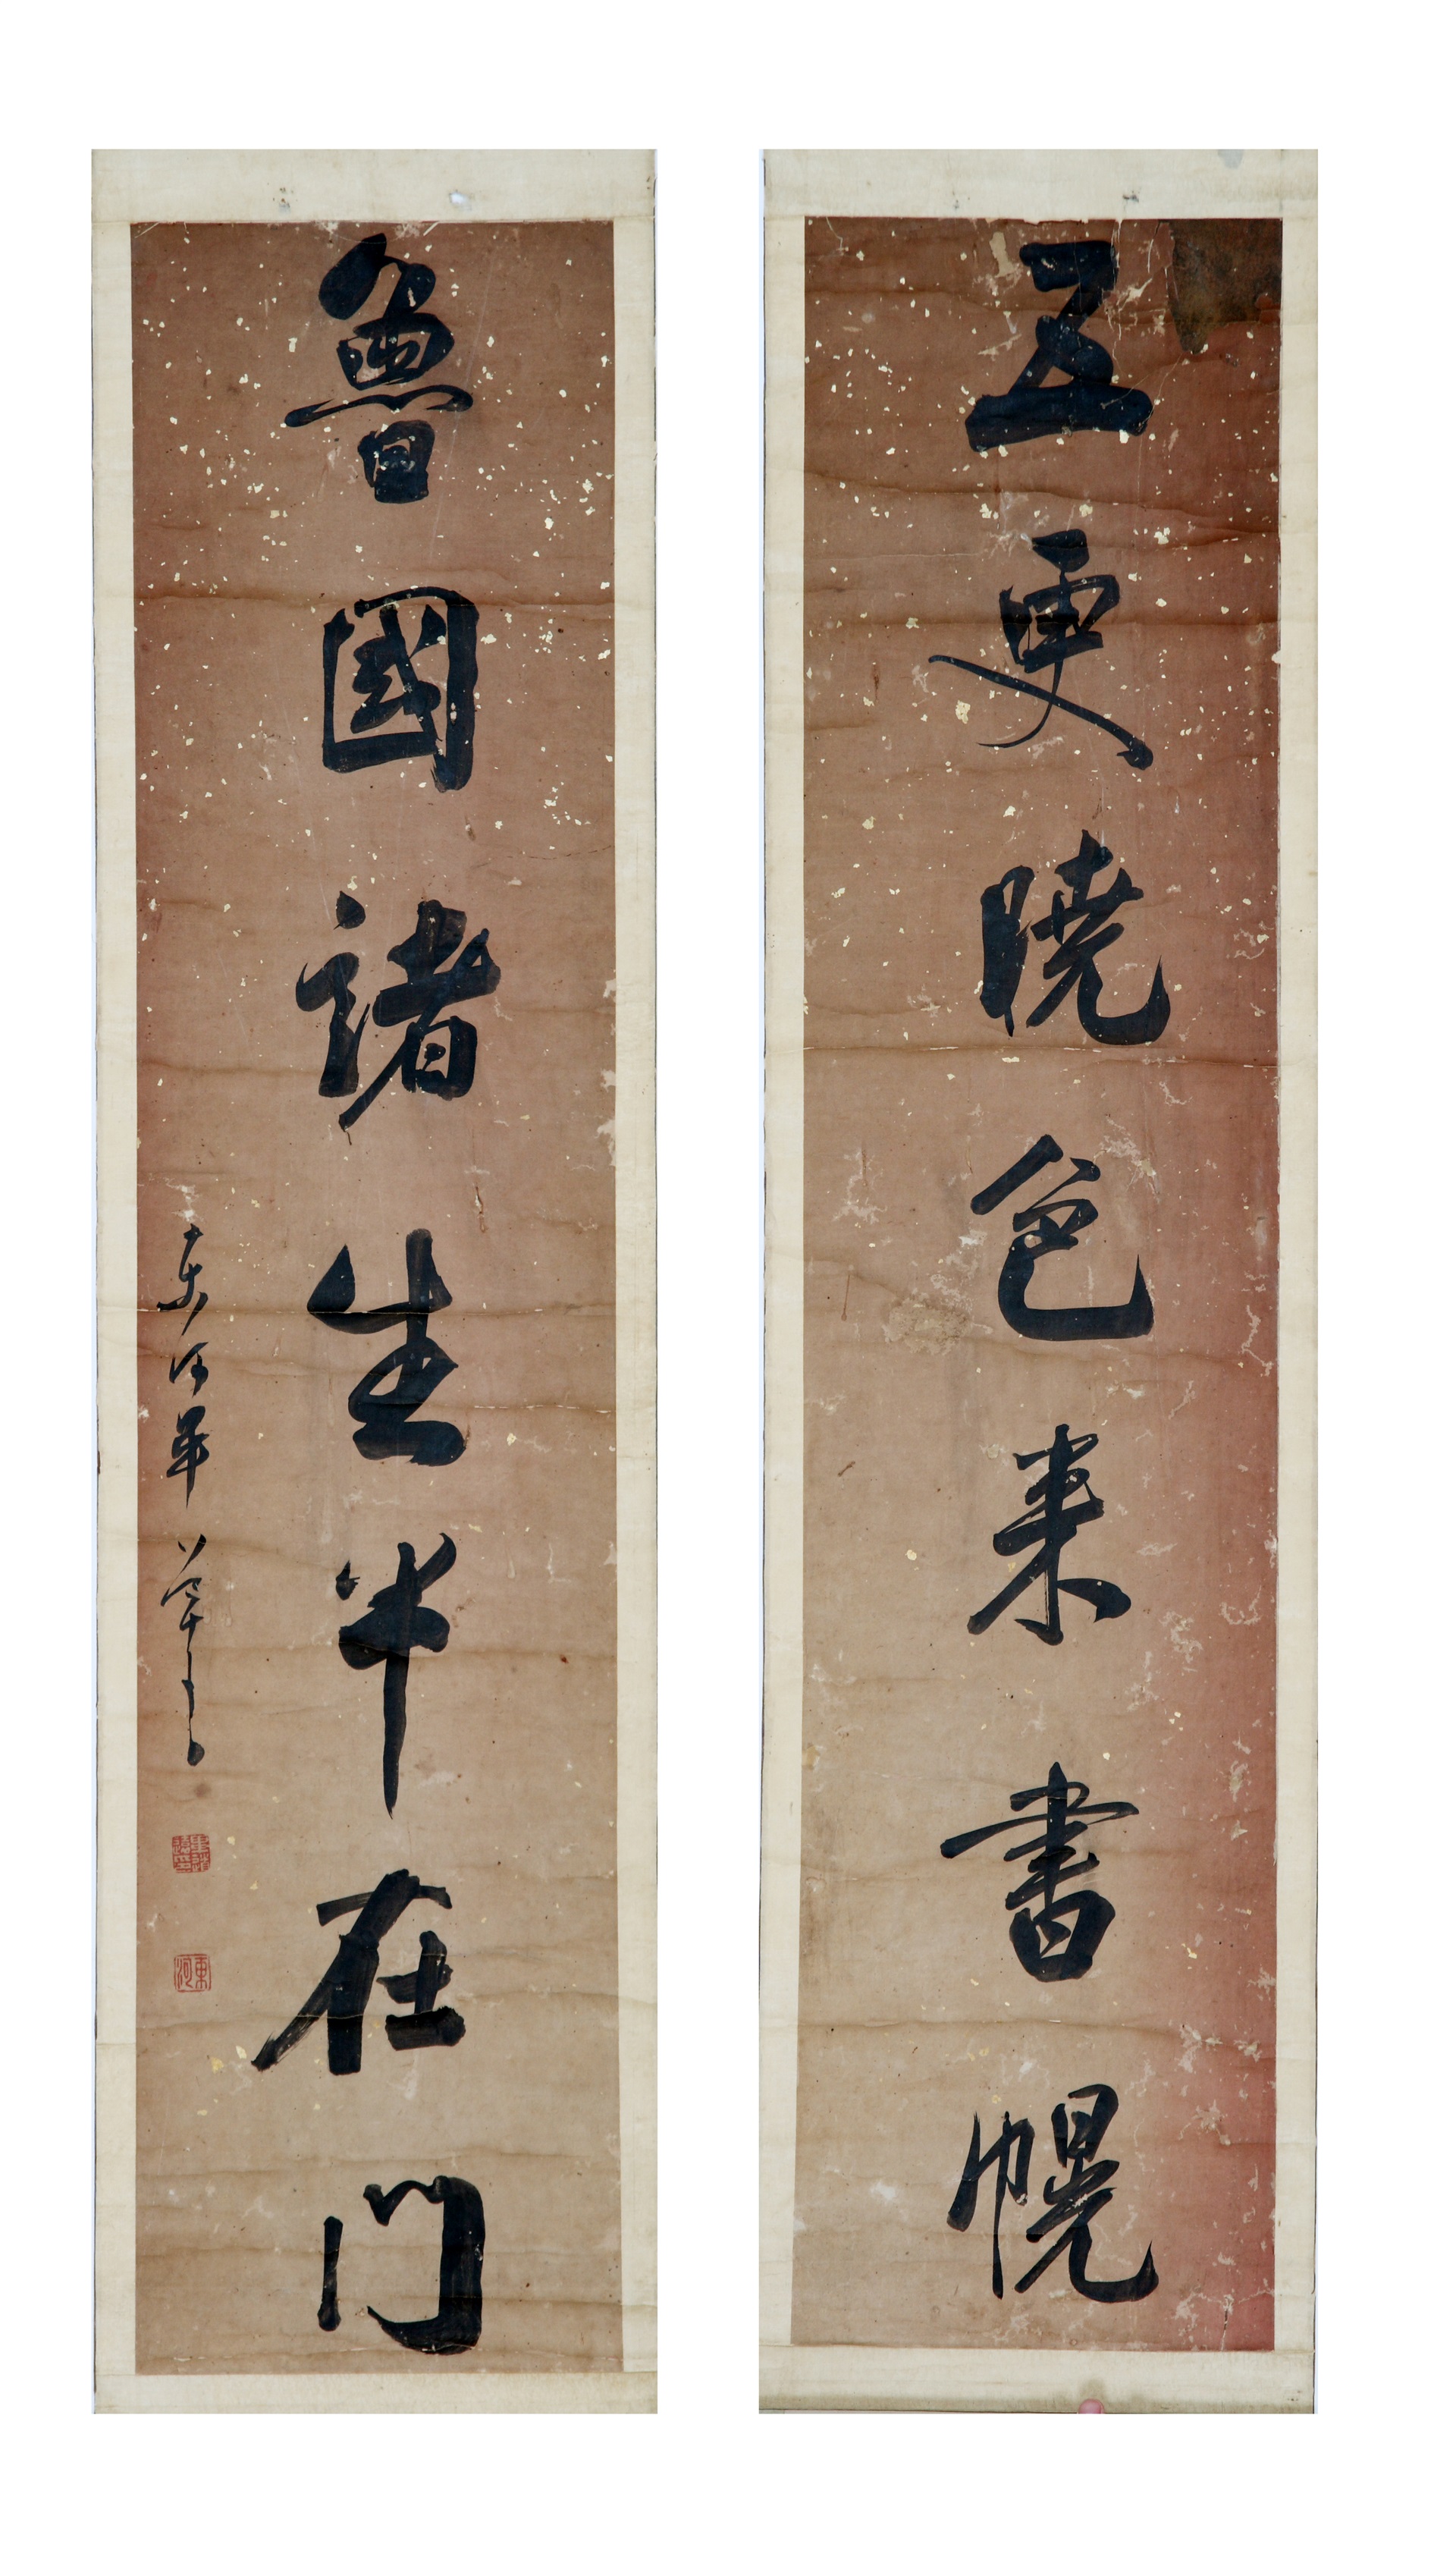 五更曉色来書幌
魯國諸生半在門
東河畢
東河